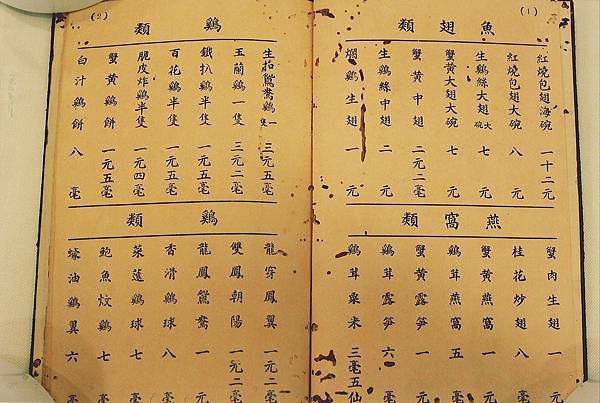 (1)
魚翅類
紅燒包翅海碗 一十二元
紅燒包翅大碗 八元
生鷄絲大翅大碗 七元
蟹黃大翅大碗 七元
蟹黃中翅 二元二毫
生鷄絲中翅 二元
爛鷄生翅 一元
燕窩類
蟹肉生翅 一元
桂花炒翅 八毫
蟹黃燕窩 一元
鷄茸燕窩 五毫
蟹黃露笋 一元
鷄茸露笋 六毫
鷄茸粟米 三毫五仙
(2)
鷄類
生拈鴛鴦鷄一隻 三元五毫
玉蘭鷄一隻 三元二毫
鐵扒鷄半隻 一元五毫
百花鷄半隻 一元五毫
脆皮炸鷄半隻 一元四毫
蟹黃鷄餅 一元五毫
白汁鷄餅 八毫
鷄類
龍穿鳳翼 一元二毫
雙鳳朝陽 一元二毫
龍鳳鴛鴦 一元
香滑鷄球 八毫
菜薳鷄球 七毫
鮑魚炆鷄 七毫
蠔油鷄翼 六毫